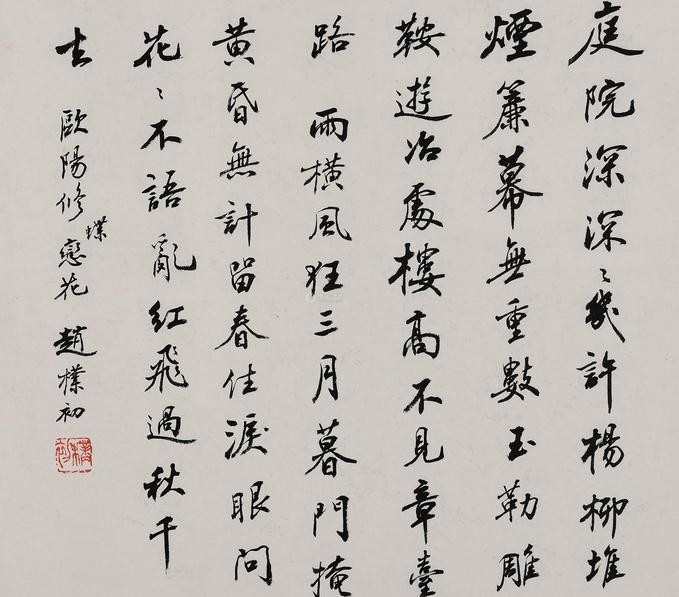 庭院深深〻幾許楊柳堆
煙簾幕無重數玉勒雕
鞍遊冶處樓高不見章臺
路 雨橫風狂三月暮門掩
黃昏無計留春住淚眼問
花〻不語亂紅飛過秋千
去
歐陽修蝶戀花 趙樸初